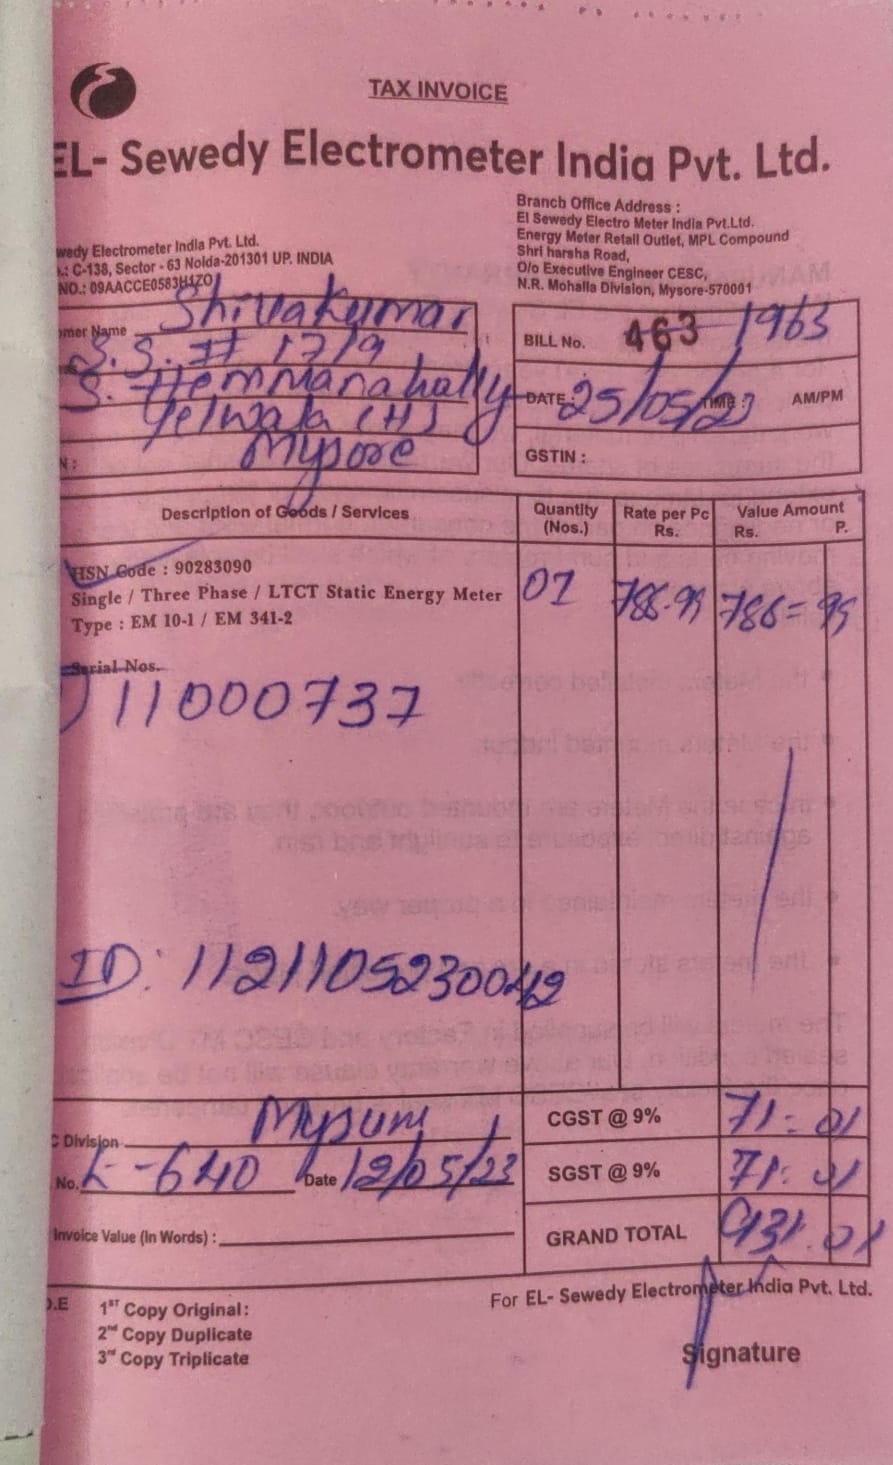 TAX INVOICE
EL- Sewedy Electrometer India Pvt. Ltd.
wedy Electrometer India Pvt. Ltd.
.: C-138, Sector - 63 Noida-201301 UP. INDIA
NO.: 09AACCE0583H1ZO
Branch Office Address :
El Sewedy Electro Meter India Pvt.Ltd.
Energy Meter Retail Outlet, MPL Compound
Shri harsha Road,
O/o Executive Engineer CESC,
N.R. Mohalla Division, Mysore-570001
omer Name Shivakumar
S.S. # 17/9
S. Hemmanahally
Yelwala (H)
N : Mysore
BILL No. 463 1963
DATE : 25/05/23 TIME : AM/PM
GSTIN :
Description of Goods / Services Quantity (Nos.) Rate per Pc Rs. Value Amount Rs. P.
HSN Code : 90283090
Single / Three Phase / LTCT Static Energy Meter 01 788.99 788=99
Type : EM 10-1 / EM 341-2
Serial Nos.
) 11000737
ID: 11211052300412
C Division Mysuru
CGST @ 9% 71=01
. No. K-640 Date 12/05/23
SGST @ 9% 71=01
Invoice Value (In Words) :
GRAND TOTAL 931.01
O.E 1ST Copy Original :
2nd Copy Duplicate
3rd Copy Triplicate
For EL- Sewedy Electrometer India Pvt. Ltd.
Signature